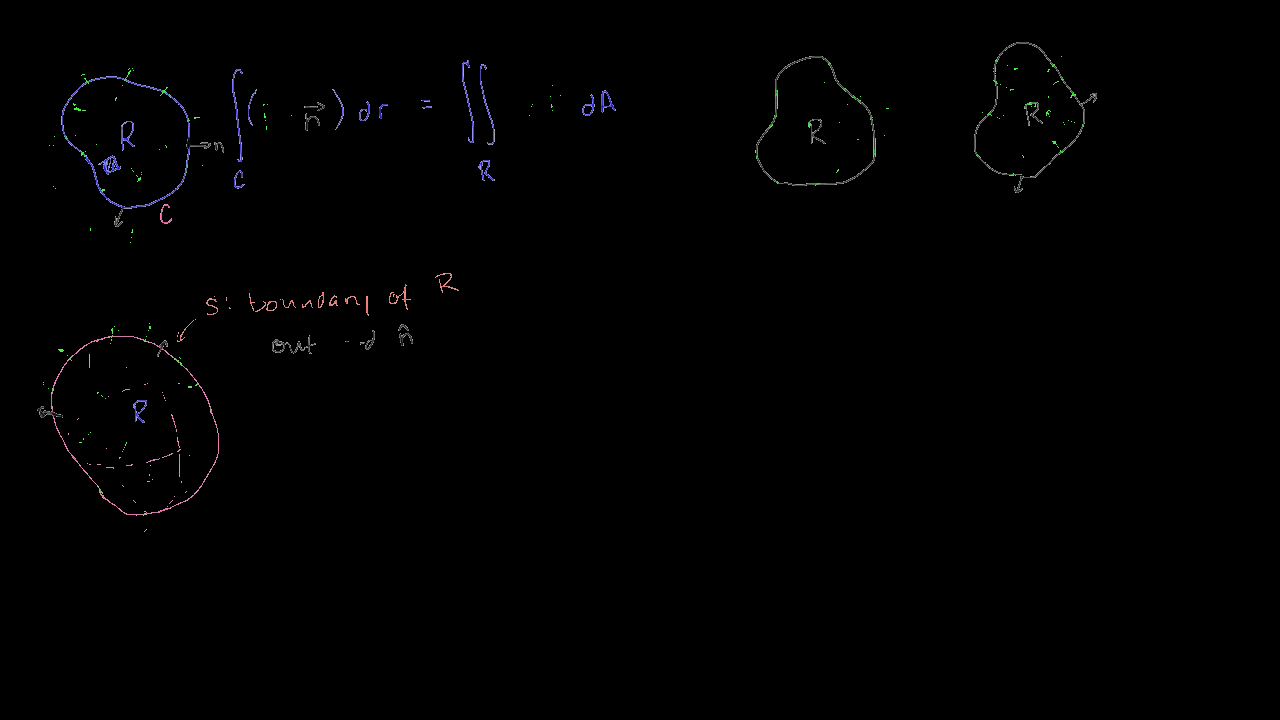 R
n
C
∫ ( · n⃗ ) dr = ∬ dA
C
R
R
R
S: boundary of R
out n̂
R